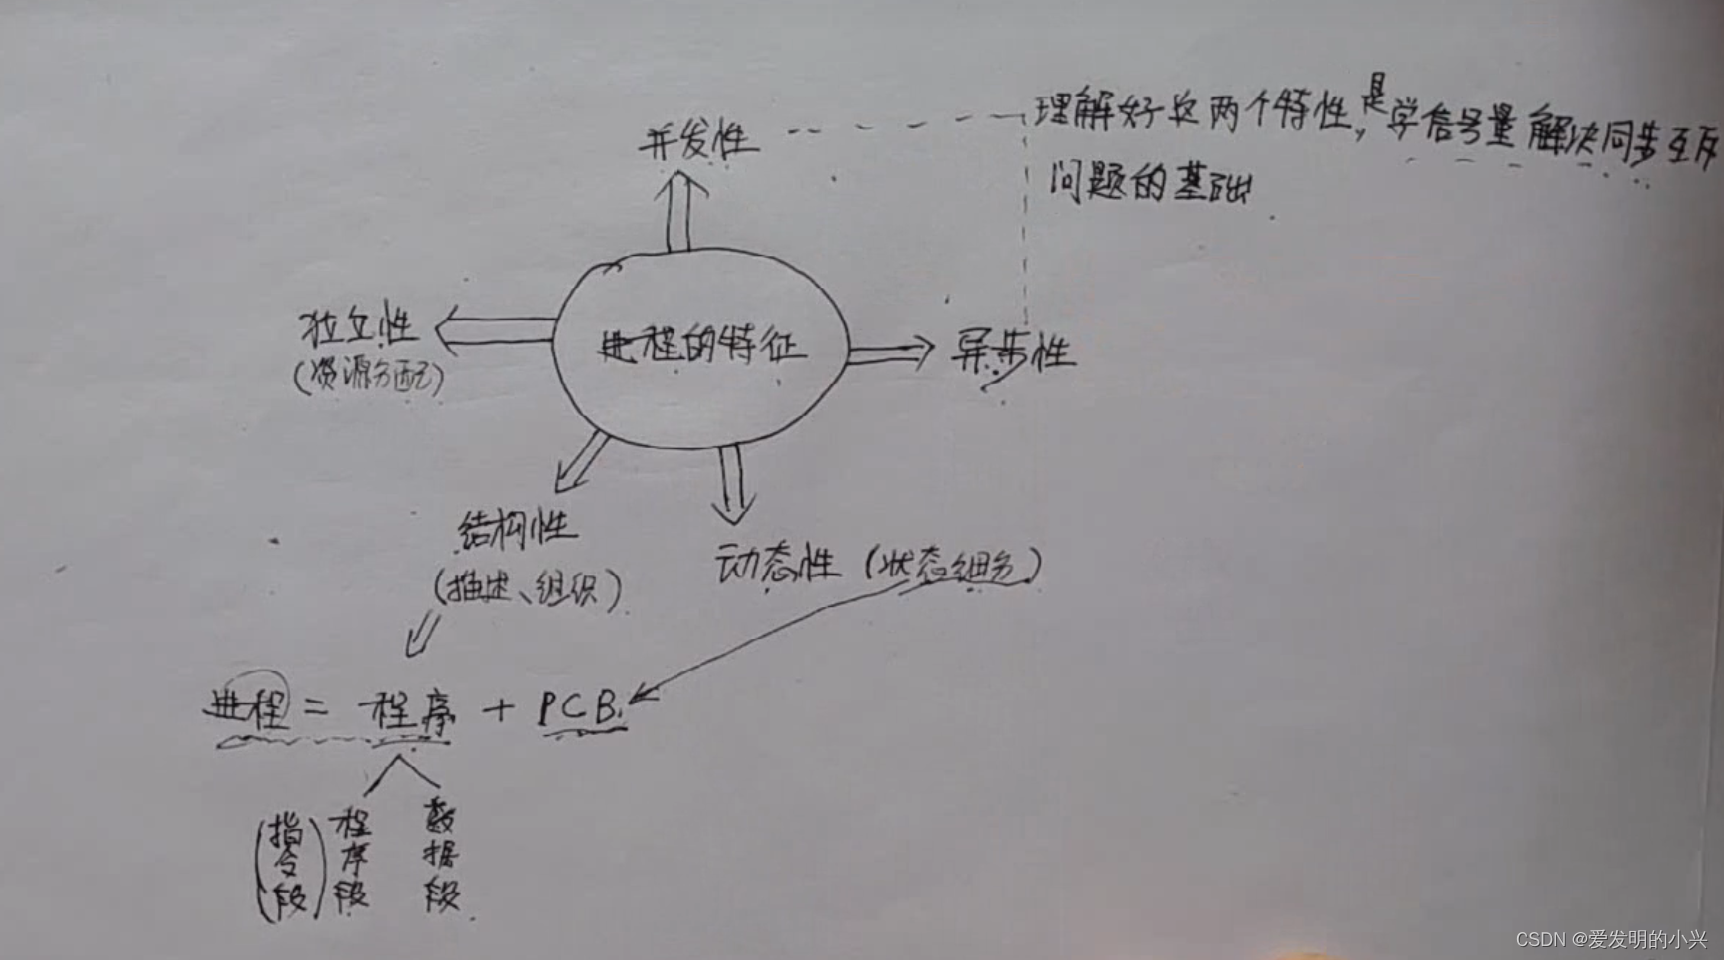 并发性
理解好这两个特性,是学信号量解决同步互斥
问题的基础
独立性
(资源分配)
进程的特征
异步性
结构性
(描述、组织)
动态性(状态细分)
进程 = 程序 + PCB
(指令段)
程序段
数据段
CSDN @爱发明的小兴